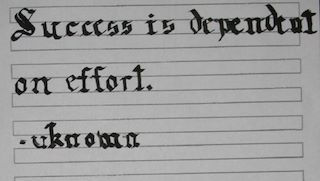 Success is dependent
on effort.
-uknown